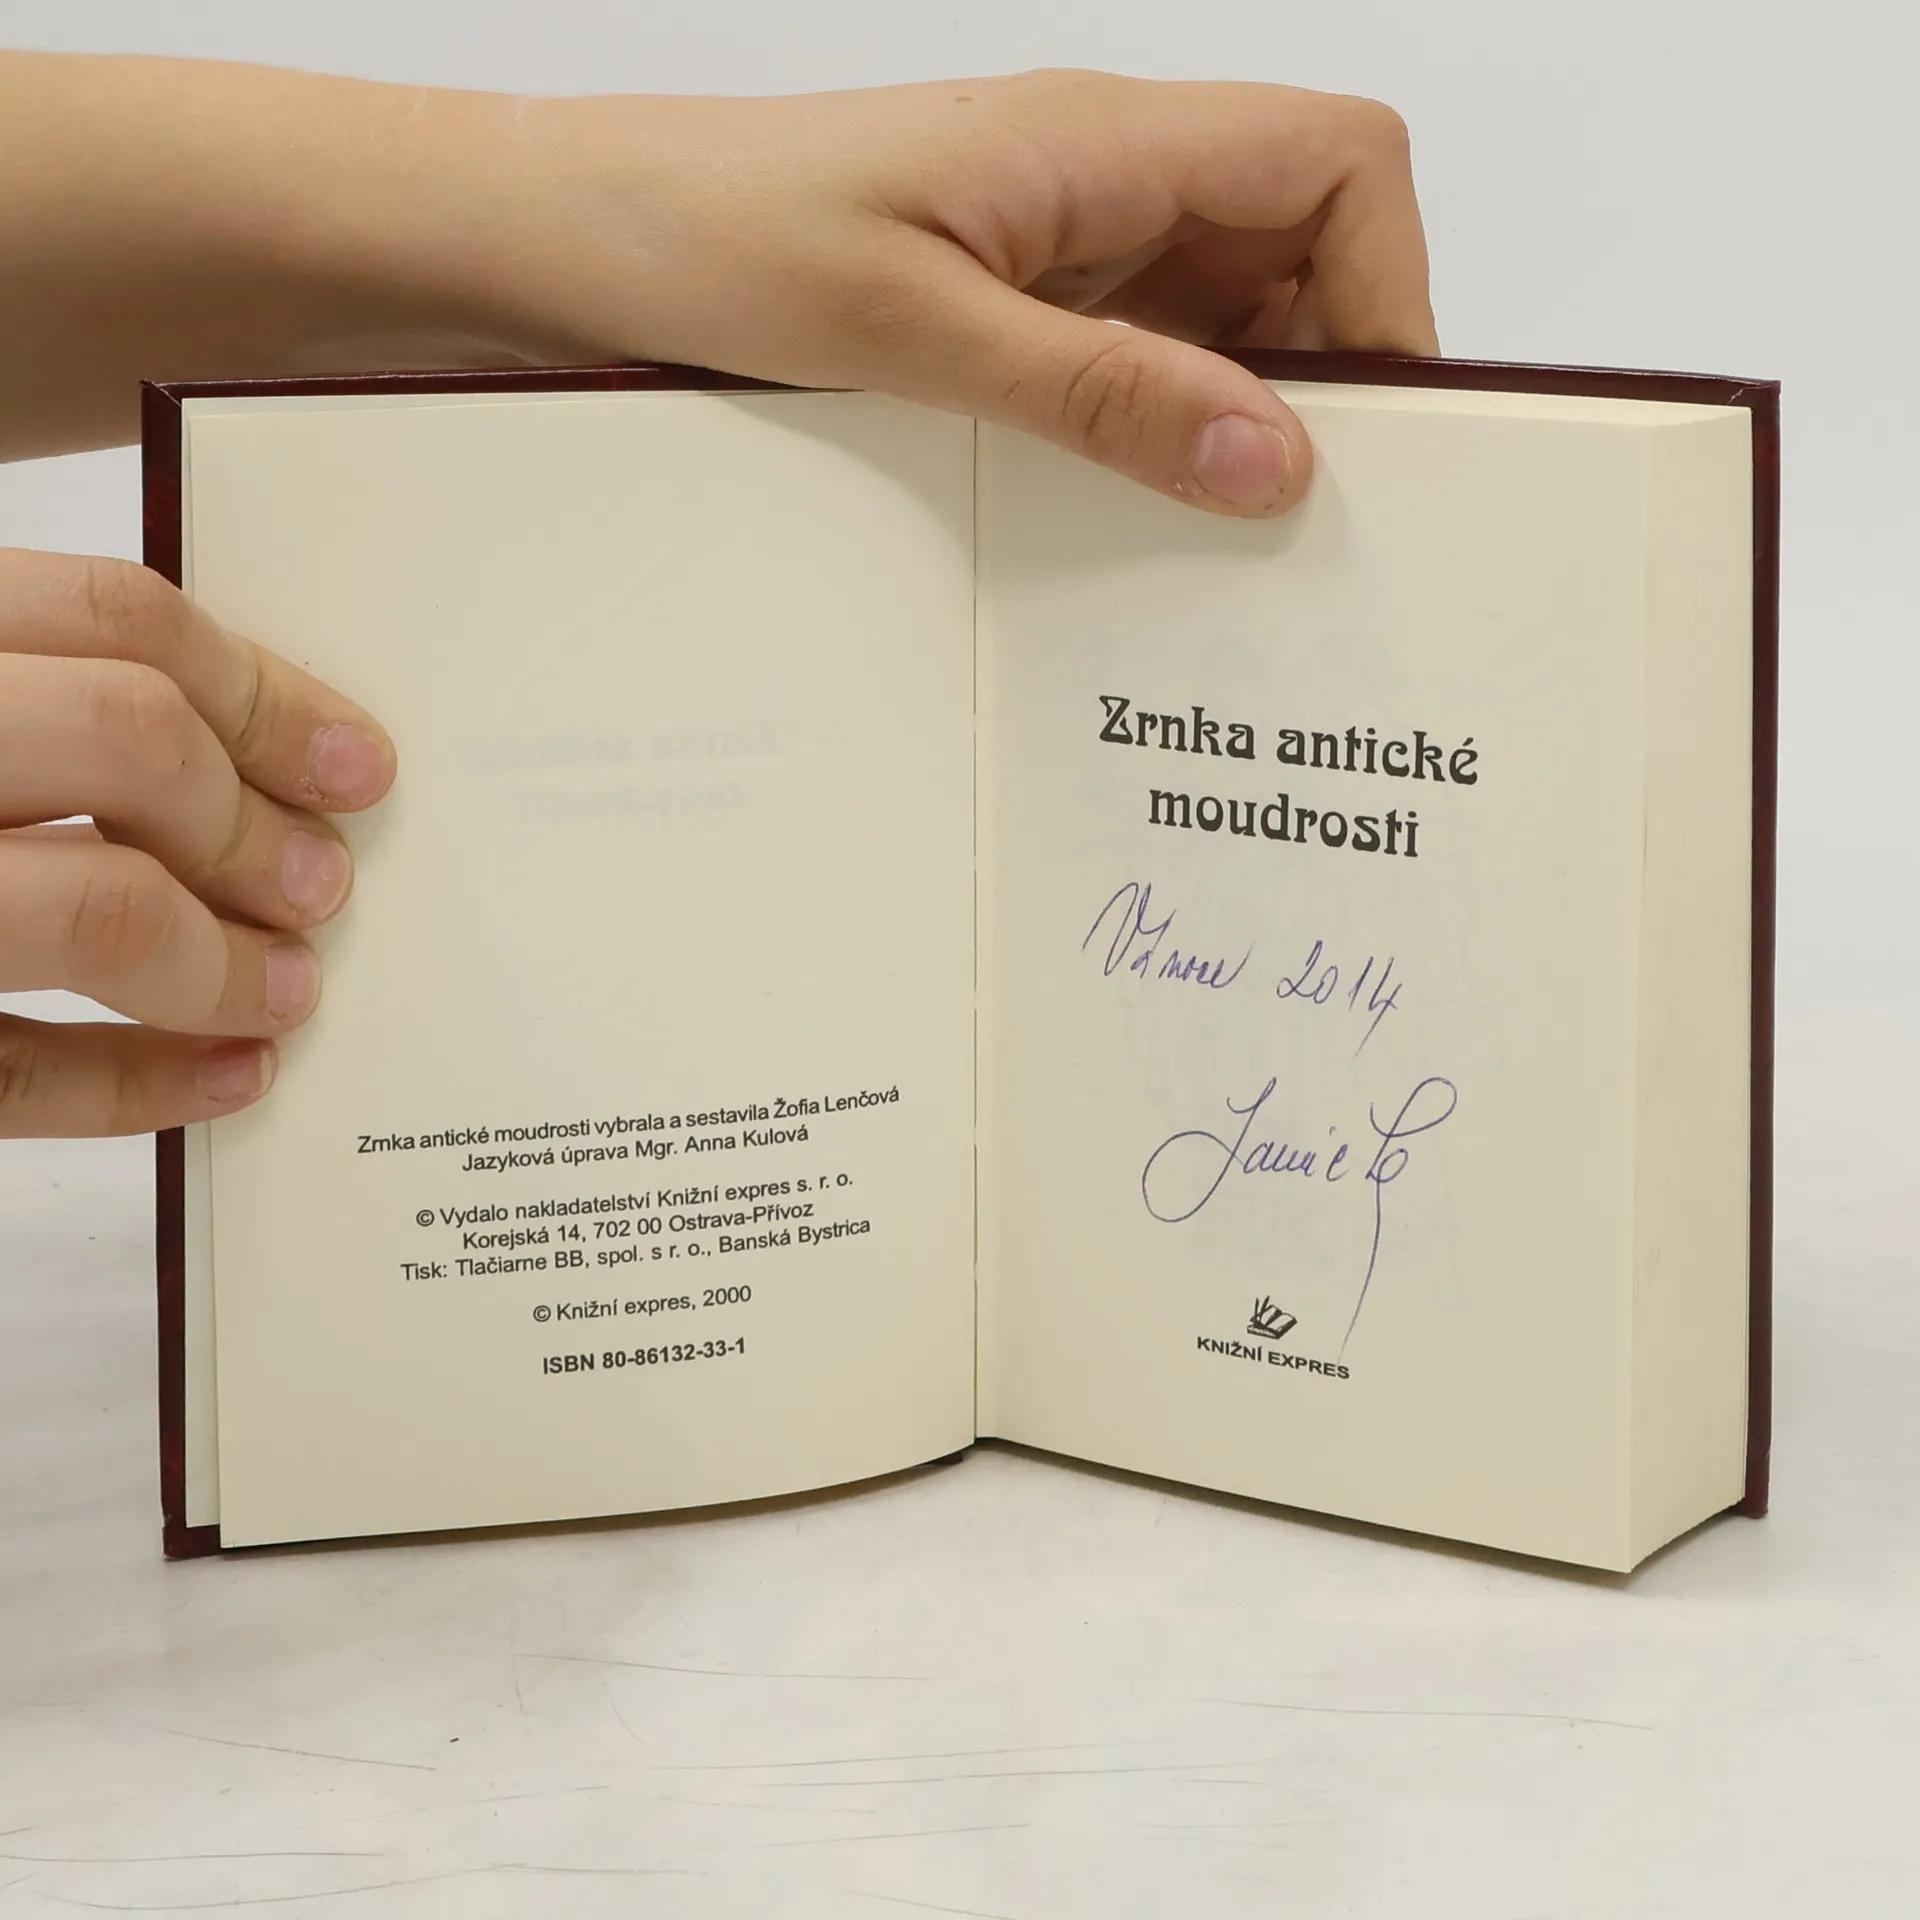 Zrnka antické moudrosti vybrala a sestavila Žofia Lenčová
Jazyková úprava Mgr. Anna Kulová
© Vydalo nakladatelství Knižní expres s. r. o.
Korejská 14, 702 00 Ostrava-Přívoz
Tisk: Tlačiarne BB, spol. s r. o., Banská Bystrica
© Knižní expres, 2000
ISBN 80-86132-33-1
Zrnka antické
moudrosti
Vánoce 2014
KNIŽNÍ EXPRES